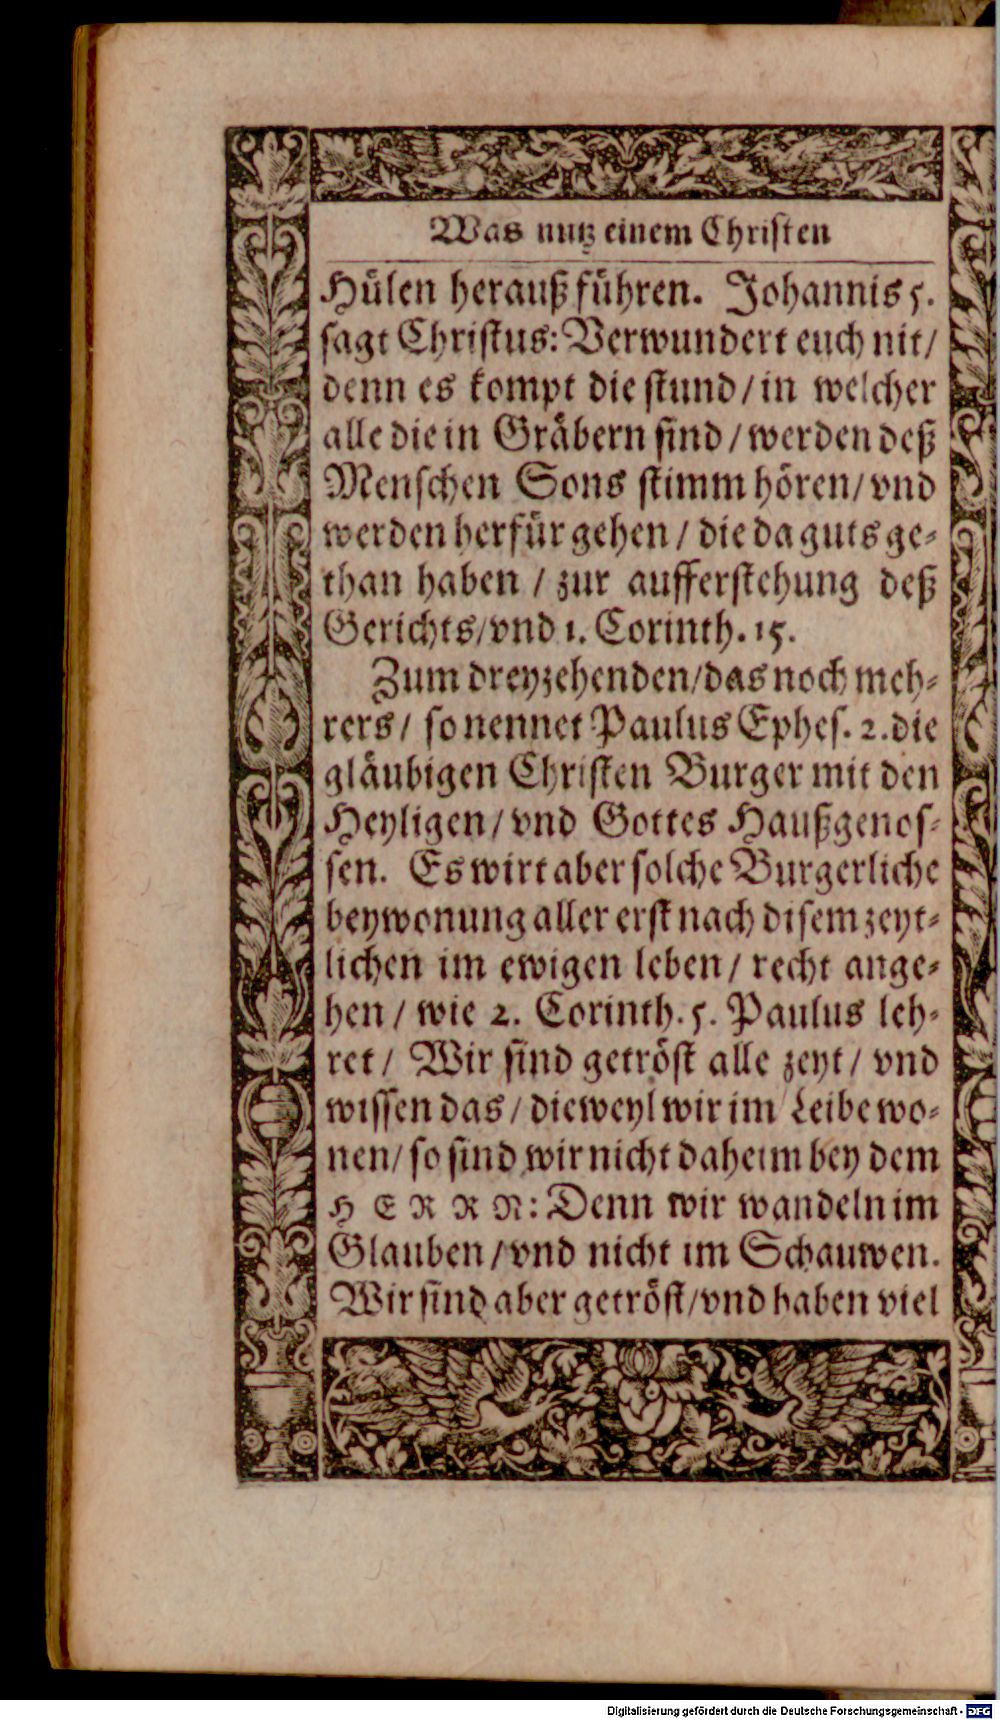 Was nutz einem Christen
Hülen herauß führen. Johannis 5.
sagt Christus: Verwundert euch nit/
denn es kompt die stund/in welcher
alle die in Gräbern sind/werden deß
Menschen Sons stimm hören/vnd
werden herfür gehen/die da guts ge-
than haben/zur aufferstehung deß
Gerichts/vnd 1. Corinth. 15.
Zum dreyzehenden/das noch meh-
rers/so nennet Paulus Ephes. 2. die
gläubigen Christen Burger mit den
Heyligen/vnd Gottes Haußgenos-
sen. Es wirt aber solche Burgerliche
beywonung aller erst nach disem zeyt-
lichen im ewigen leben/recht ange-
hen/wie 2. Corinth. 5. Paulus leh-
ret/Wir sind getröst alle zeyt/vnd
wissen das/dieweyl wir im Leibe wo-
nen/so sind wir nicht daheim bey dem
HERRN: Denn wir wandeln im
Glauben/vnd nicht im Schauwen.
Wir sind aber getröst/vnd haben viel
Digitalisierung gefördert durch die Deutsche Forschungsgemeinschaft - DFG